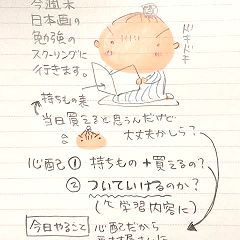 今週末
日本画の
勉強の
スクーリングに
行きます。
ドキドキ
持ちもの表
当日買えると思うんだけど
大丈夫かしら？
心配 ① 持ちもの + 買えるの？
② ついていけるのか？
(学習内容に)
今日やること
心配だから